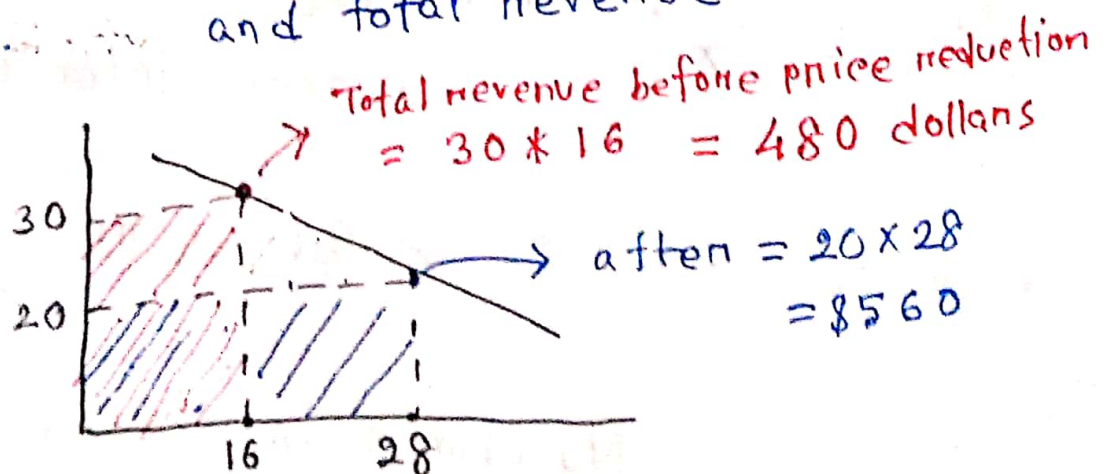 and total
Total revenue before price reduction
= 30 * 16 = 480 dollars
30
after = 20 x 28
20
= $560
16 28